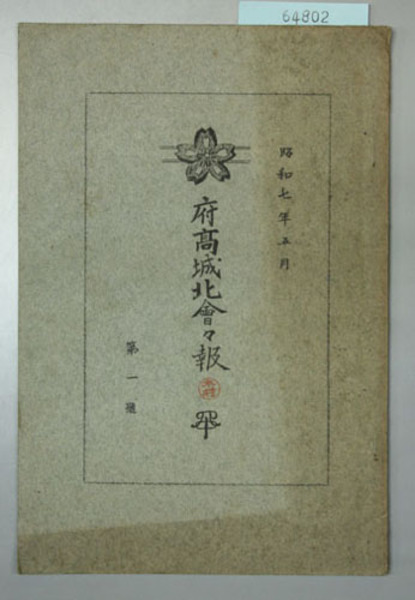 64802
昭和七年五月
府髙城北會々報
第一號